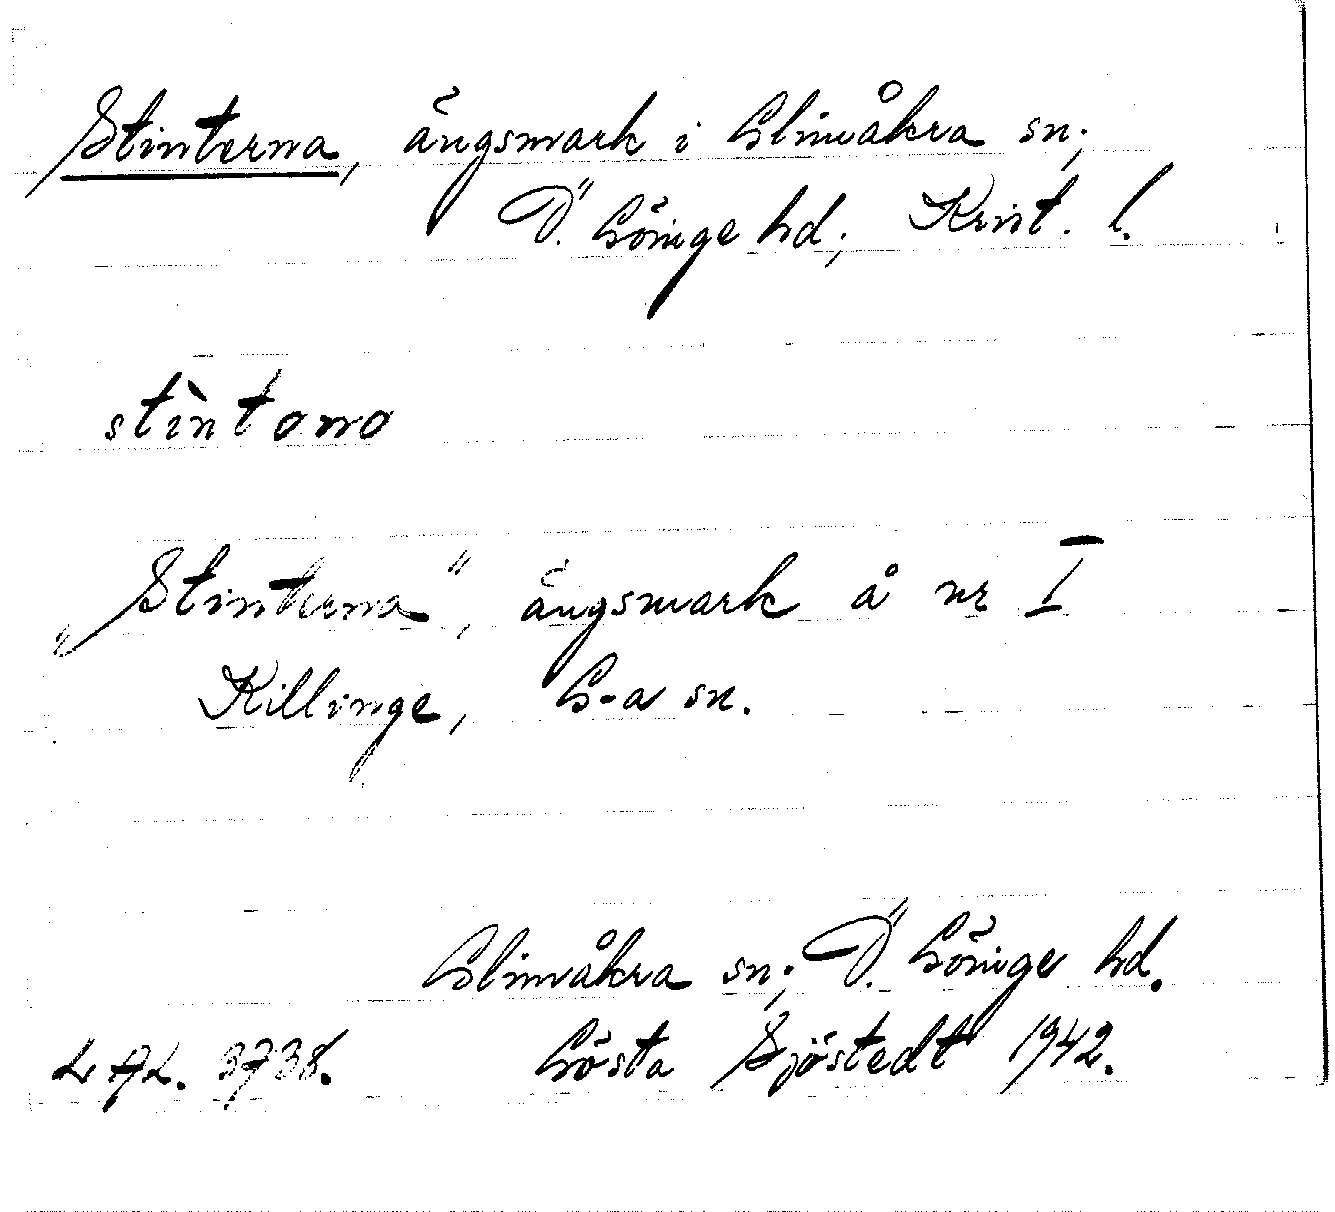 Stinterna, ängsmark i Glimåkra sn;
Ö. Göinge hd; Krist. l.
stìntorno
"Stinterna", ängsmark å nr I
Killinge, G-a sn.
Glimåkra sn; Ö. Göinge hd.
L. A. L. 3738. Gösta Sjöstedt 1942.